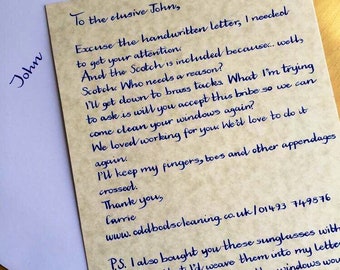 To the elusive John,
Excuse the handwritten letter, I needed
to get your attention.
And the Scotch is included because.. well,
Scotch. Who needs a reason?
I'll get down to brass tacks. What I'm trying
to ask is will you accept this bribe so we can
come clean your windows again?
We loved working for you. We'd love to do it
again.
I'll keep my fingers, toes and other appendages
crossed.
Thank you,
Carrie
www.oddbodscleaning.co.uk/01493 749576
P.S. I also bought you these sunglasses with
I'd weave them into my letter
windows wou
John